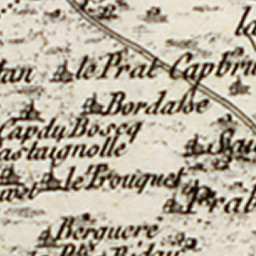 la
tan le Prat Capbru
Bordalse
Cap du Boscq
astaignolle
Sau
le Trouquet
Prat
Berguere
Bidau